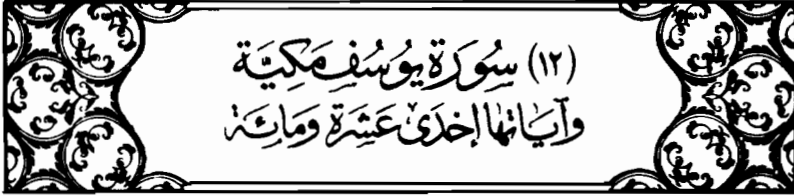 (١٢) سُورَة يُوسُفَ مَكِيَّة
وَآيَاتهَا إحْدَىٰ عَشَرَة وَمَائَة